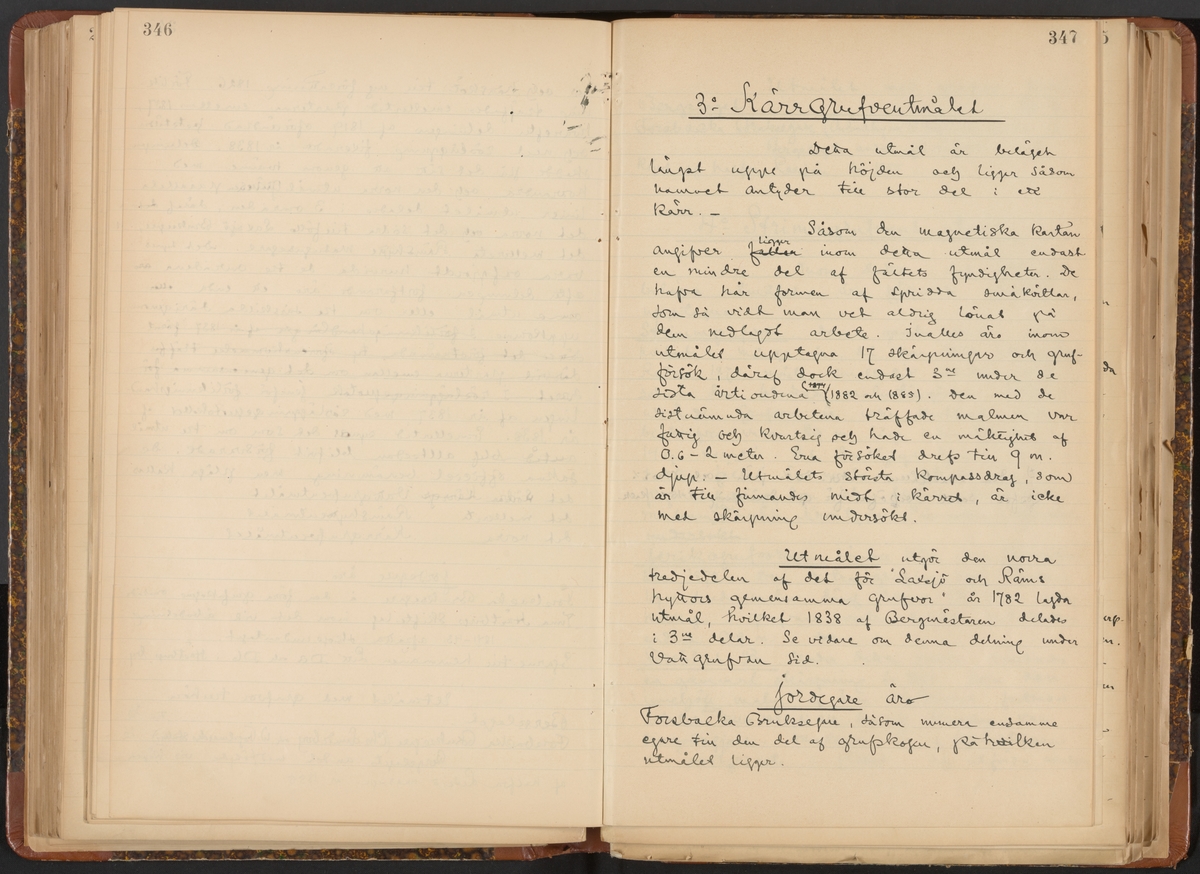 346
347
3º Kärrgrufveutmålet
Detta utmål är beläget
längst uppe på höjden och ligger såsom
namnet antyder till stor del i ett
kärr. –
Såsom den magnetiska kartan
angifver faller ligger inom detta utmål endast
en mindre del af fältets fyndigheter. De
hafva här formen af spridda småkörtlar,
som så vidt man vet aldrig lönat på
dem nedlagdt arbete. Inalles äro inom
utmålet upptagna 17 skärpningar och gruf-
försök, däraf dock endast 3ne under de
sista årtiondena (1882 och 1889). Den med de
sistnämnda arbetena träffade malmen var
fattig och kvartsig och hade en mäktighet af
0.6 – 2 meter. Ena försöket drefs till 9 m.
djup. – Utmålets största kompassdrag, som
är till finnandes midt i kärret, är icke
med skärpning undersökt.
Utmålet utgör den norra
tredjedelen af det för "Laxsjö och Räms
hyttors gemensamma grufvor" år 1782 lagda
utmål, hvilket 1838 af Bergmästaren delades
i 3ne delar. Se vidare om denna delning under
grufvan sid.
Jordegare äro
Forsbacka Bruksegare, såsom numera ensamme
egare till den del af grufskogen, på hvilken
utmålet ligger.